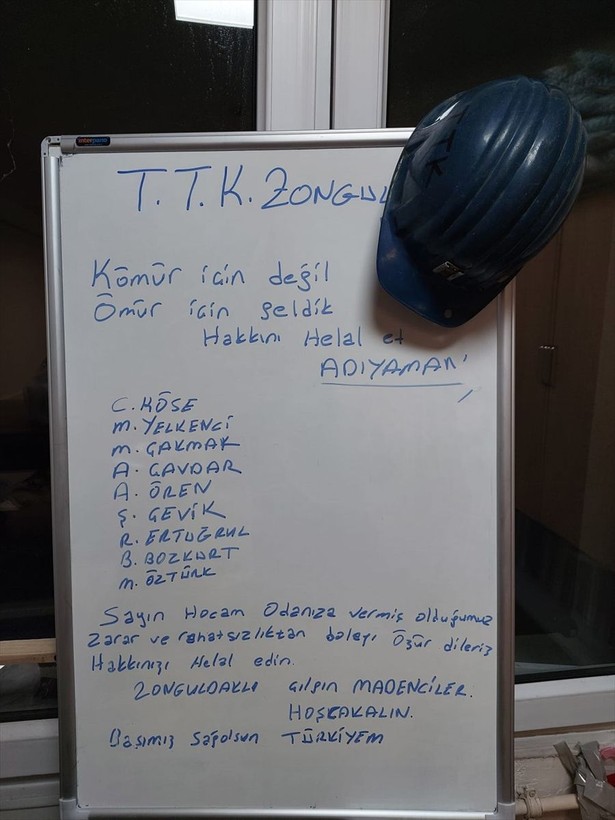 T.T.K. ZONGUL
Kömür için değil
Ömür için geldik
Hakkını Helal et
ADIYAMAN'
C. KÖSE
M. YELKENCİ
M. ÇAKMAK
A. ÇAVDAR
A. ÖREN
Ş. ÇEVİK
R. ERTUĞRUL
B. BOZKURT
M. ÖZTÜRK
Sayın Hocam Odanıza vermiş olduğumuz
zarar ve rahatsızlıktan dolayı Özür dileriz
Hakkınızı Helal edin.
ZONGULDAKLI çılgın MADENCİLER.
HOŞÇAKALIN.
Başımız Sağolsun TÜRKİYEM
TTK